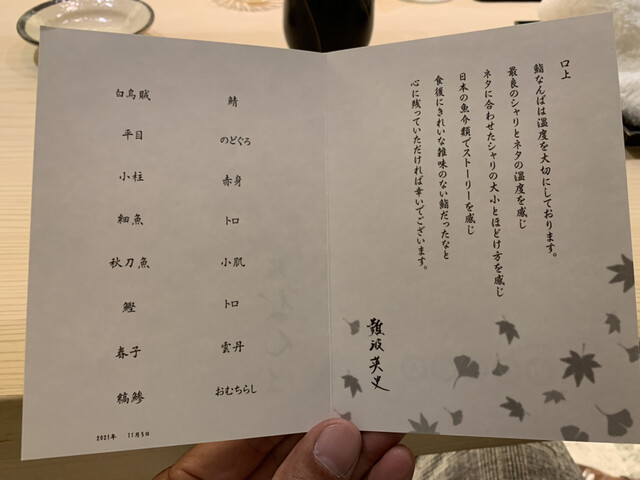 口上
鮨なんばは温度を大切にしております。
最良のシャリとネタの温度を感じ
ネタに合わせたシャリの大小とほどけ方を感じ
日本の魚介類でストーリーを感じ
食後にきれいな雑味のない鮨だったなと
心に残っていただければ幸いでございます。
難波英史
白烏賊
平目
小柱
細魚
秋刀魚
鰹
春子
縞鯵
鯖
のどぐろ
赤身
トロ
小肌
トロ
雲丹
おむちらし
2021年 11月5日